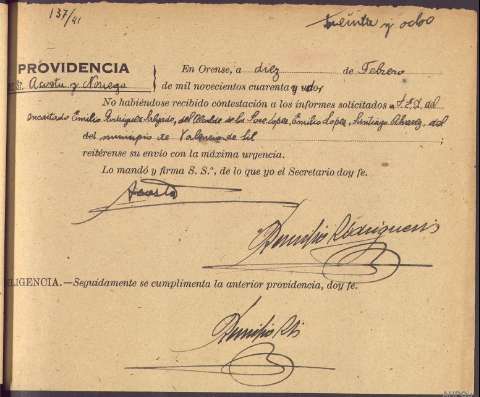 137/41
treinta y ocho
PROVIDENCIA
Sr. Acosta y Noriega
En Orense, a diez de Febrero
de mil novecientos cuarenta y uno,
No habiéndose recibido contestación a los informes solicitados a
encartado Emilio Rodriguez Salgado, del Alcalde de Emilio Lopez, Santiago Alvarez,
del municipio de Valencia de Sil
reitérense su envío con la máxima urgencia.
Lo mandó y firma S. S.ª, de lo que yo el Secretario doy fe.
Acosta
Rodriguez
LIGENCIA.—Seguidamente se cumplimenta la anterior providencia, doy fe.